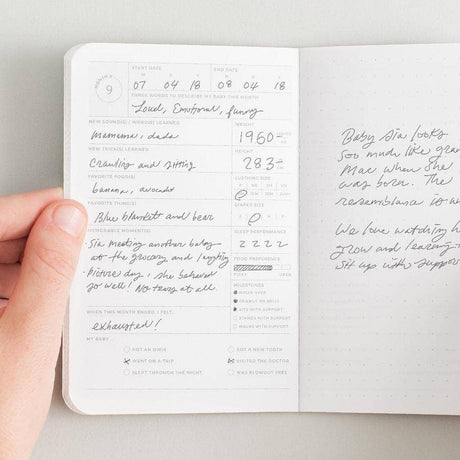 START DATE END DATE
M D Y M D Y
07 04 18 08 04 18
MONTH # 9
THREE WORDS TO DESCRIBE MY BABY THIS MONTH
Loud, Emotional, funny
NEW SOUND(S) / WORD(S) LEARNED
mamama, dada
WEIGHT
1960
NEW TRICK(S) LEARNED
Crawling and sitting
HEIGHT
283
FAVORITE FOOD(S)
banana, avocado
CLOTHING SIZE
FAVORITE THING(S)
Blue blankett and bear
DIAPER SIZE
MEMORABLE MOMENT(S)
Sia meeting another baby
at the grocery and laughing
Picture day, she behaved
so well! No tears at all.
SLEEP PERFORMANCE
Z Z Z Z
FOOD PREFERENCE
PICKY OPEN
MILESTONES
ROLLS OVER
CRAWLS ON BELLY
SITS WITH SUPPORT
STANDS WITH SUPPORT
WALKS WITH SUPPORT
WHEN THIS MONTH ENDED I FELT,
exhausted!
MY BABY...
GOT AN OWIE GOT A NEW TOOTH
WENT ON A TRIP VISITED THE DOCTOR
SLEPT THROUGH THE NIGHT HAD BLOWOUT FREE
Baby Sia looks
soo much like
Mac when she
was born. The
resemblance is
We love watching
grow and
sit up with support